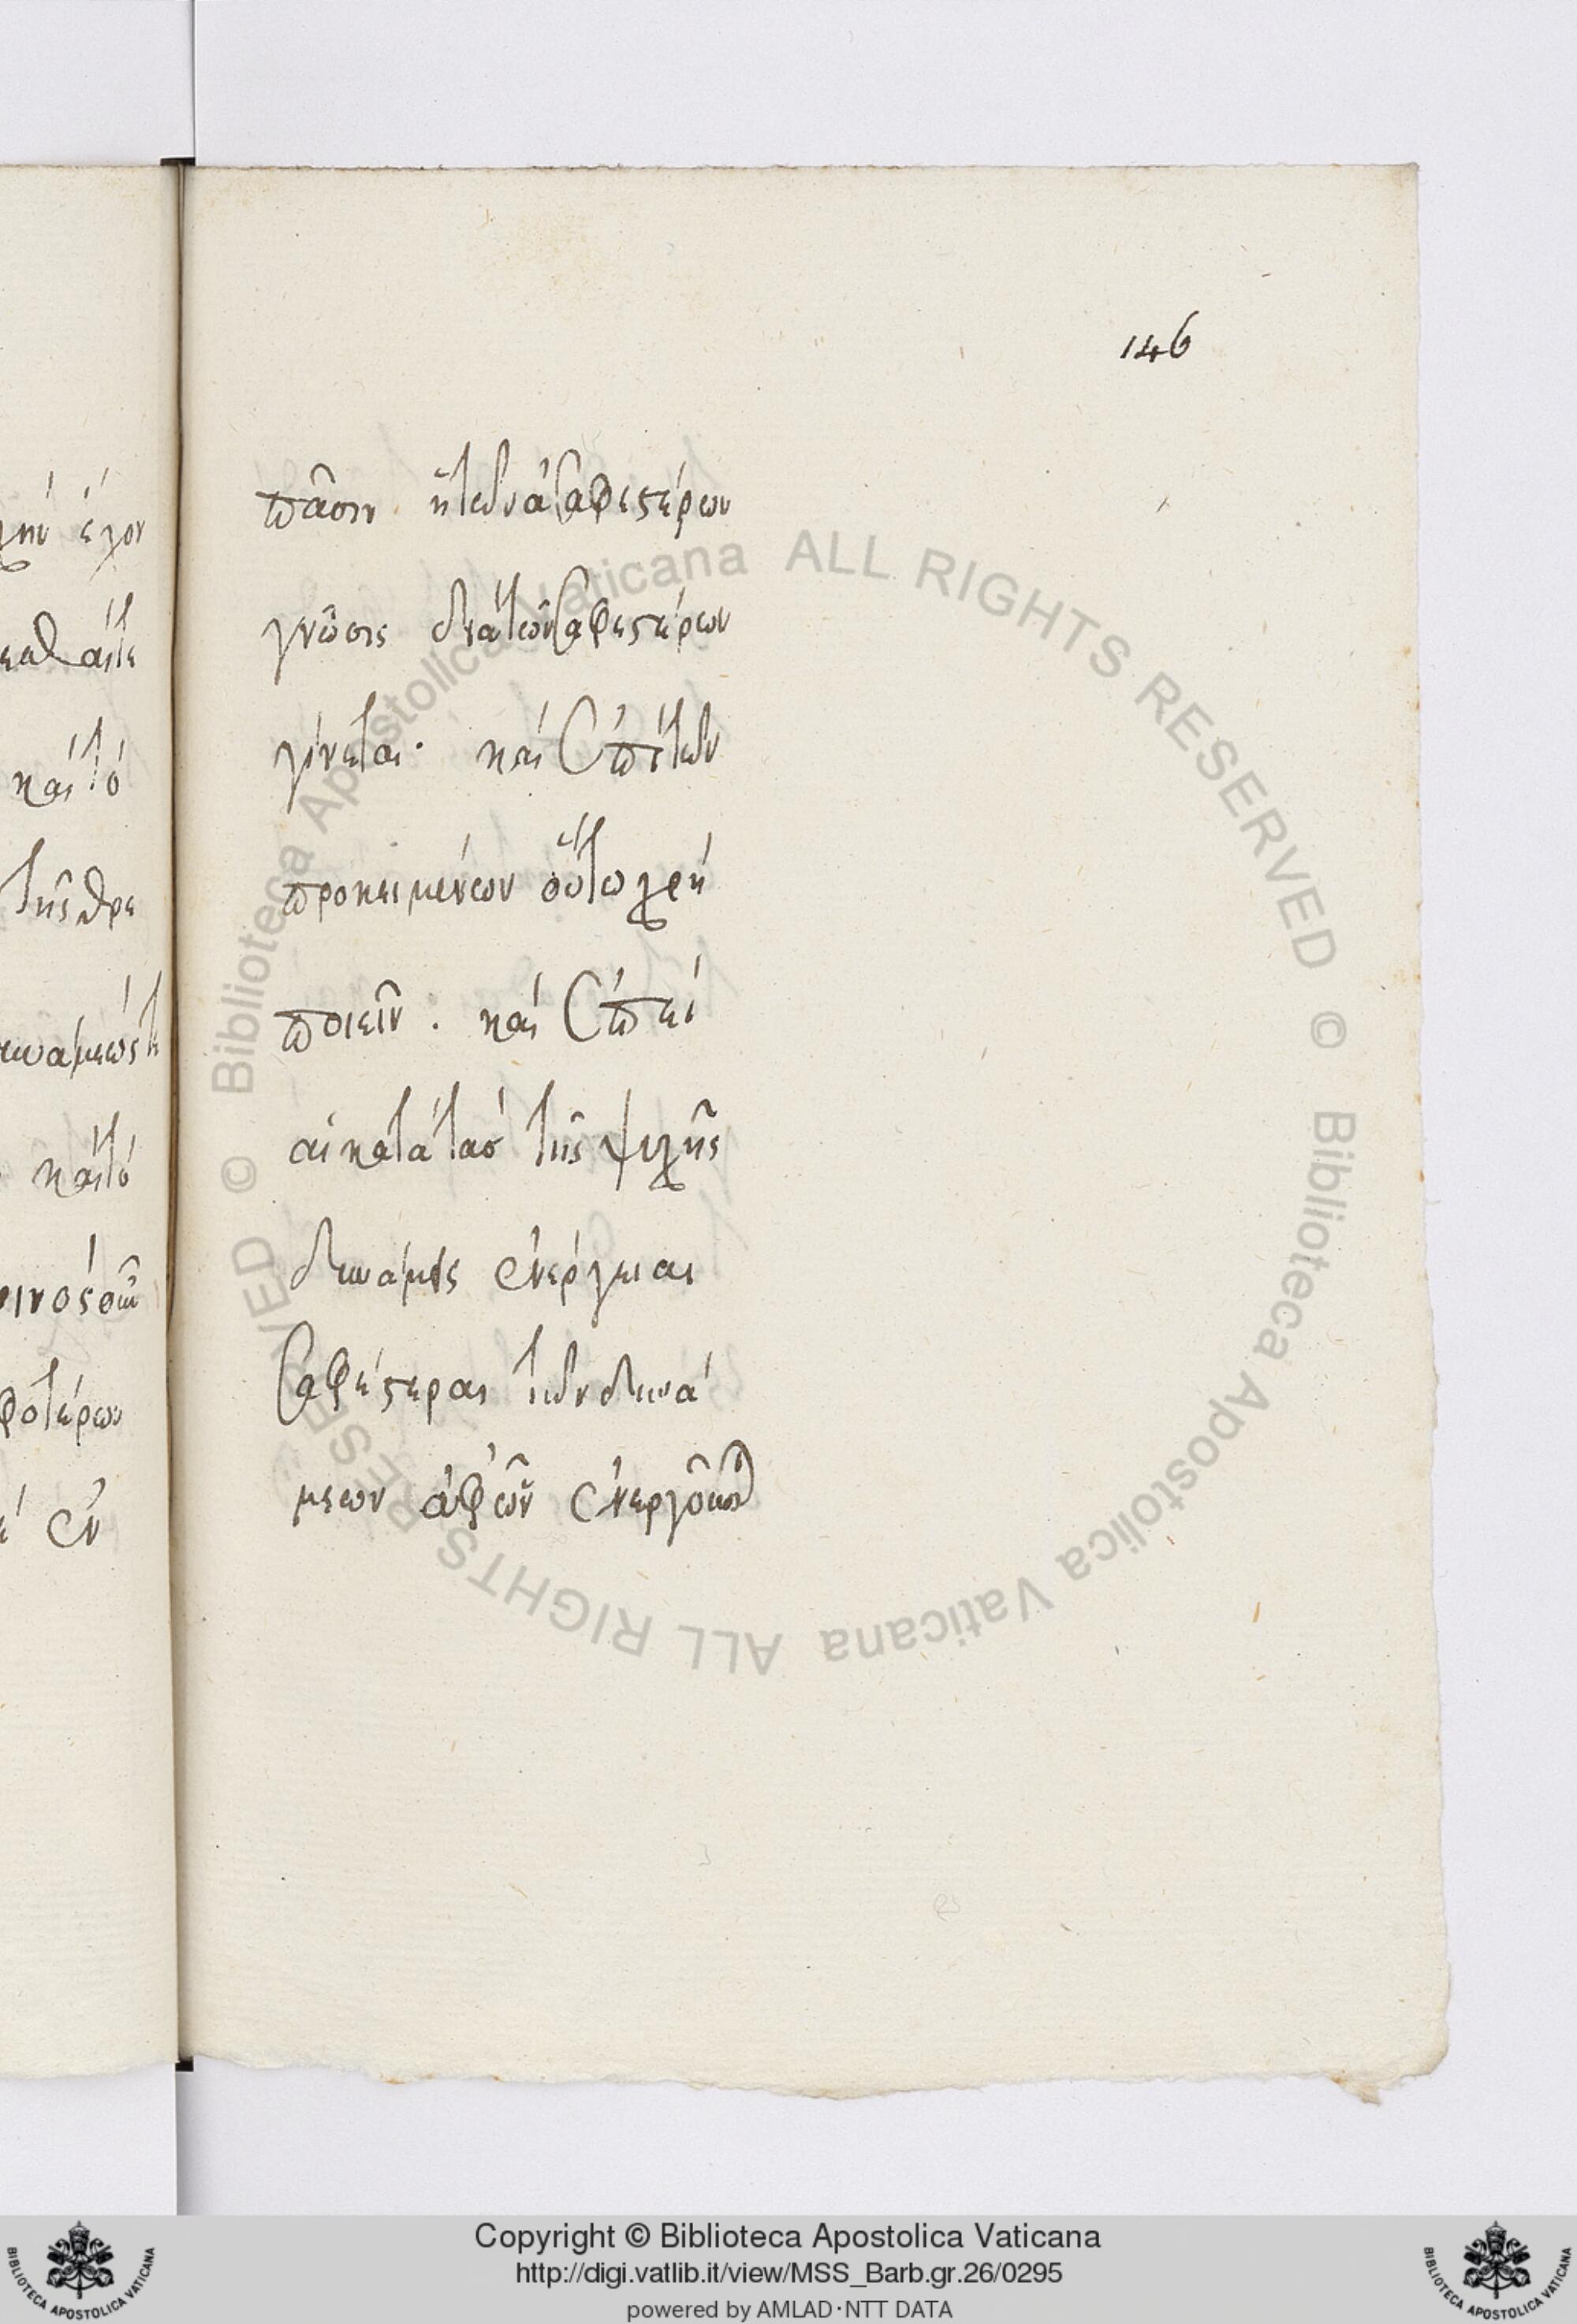 146
πᾶσιν ἡ τῶν ἀσαφεστέρων
γνῶσις διὰ τῶν σαφεστέρων
γίνεται· καὶ ἐπὶ τῶν
προκειμένων οὕτω χρὴ
ποιεῖν· καὶ ἐπεὶ
αἱ κατὰ τὰσ τῆς ψυχῆς
δυνάμεις ἐνέργειαι
σαφέστεραι τῶν δυνά
μεων ἀφ' ὧν ἐνεργοῦσιν
χην ἔχον
καὶ τὸ
τῆς θρε
καὶ τὸ
φοτέρων
ἐν
© Biblioteca Apostolica Vaticana ALL RIGHTS RESERVED © Biblioteca Apostolica Vaticana ALL RIGHTS RESERVED
Copyright © Biblioteca Apostolica Vaticana
http://digi.vatlib.it/view/MSS_Barb.gr.26/0295
powered by AMLAD·NTT DATA
BIBLIOTECA APOSTOLICA VATICANA
BIBLIOTECA APOSTOLICA VATICANA